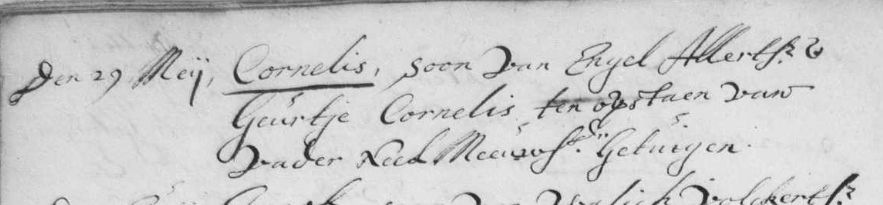 Den 29 Meij, Cornelis, soon van Engel Allerts. &
Geurtje Cornelis ten opstaen van
vader Neel Meeuws. Getuigen.
van volckerts.